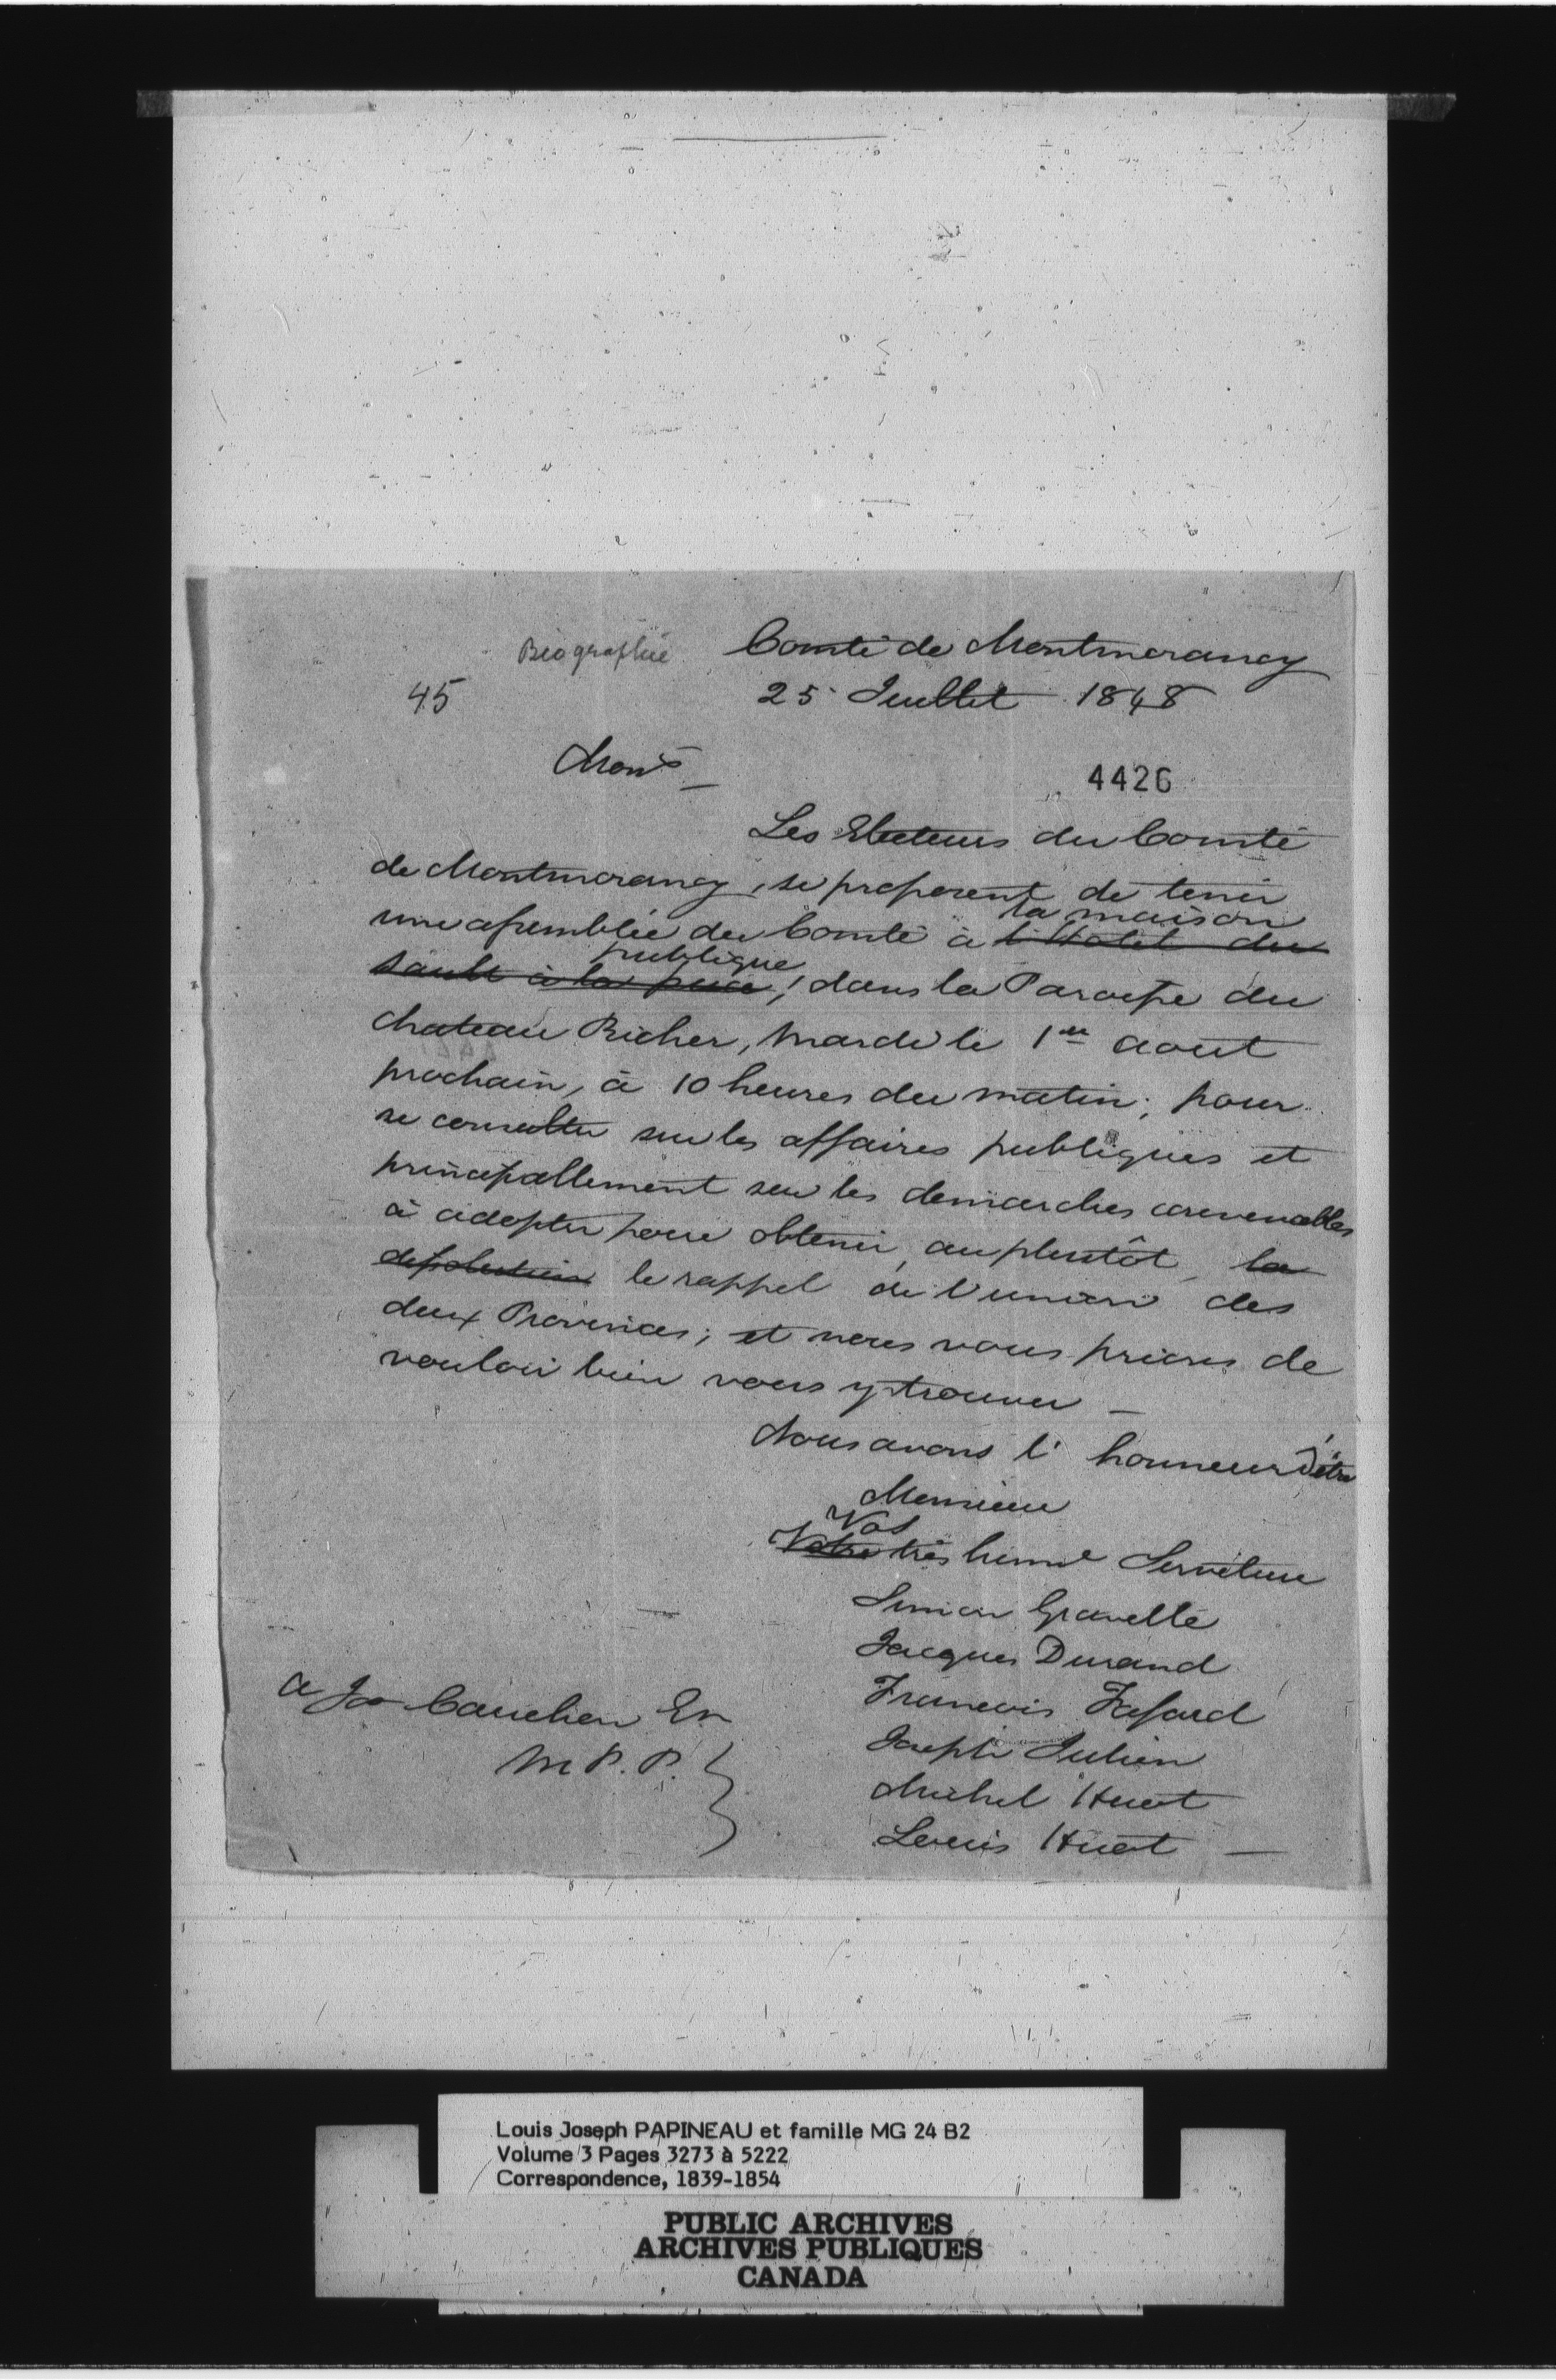 Biographie
Comté de Montmorancy
45
25 Juillet 1848
Monsr
4426
Les Electeurs du Comté
de Montmorancy, se proposent de tenir
la maison
une assemblée du Comté à l'Hotel du
publique
Sault à la puce, dans la Paroisse du
chateau Richer, Mardi le 1er aout
prochain, à 10 heures du matin; pour
se consulter sur les affaires publiques et
principallement sur les demarches convenables
à adopter pour obtenir, au plutôt, la
dissolution le rappel de l'union des
deux Provinces; et nous vous prions de
vouloir bien vous y trouver —
Nous avons l'honneur d'être
Monsieur
Vos
Votre très humle Serviteur
Simon Gravelle
Jacques Durand
Francois Fafard
A Jos Cauchon Er
Joseph Julien
M.P.P.
Michel Huot
Louis Huot —
Louis Joseph PAPINEAU et famille MG 24 B2
Volume 3 Pages 3273 à 5222
Correspondence, 1839-1854
PUBLIC ARCHIVES
ARCHIVES PUBLIQUES
CANADA